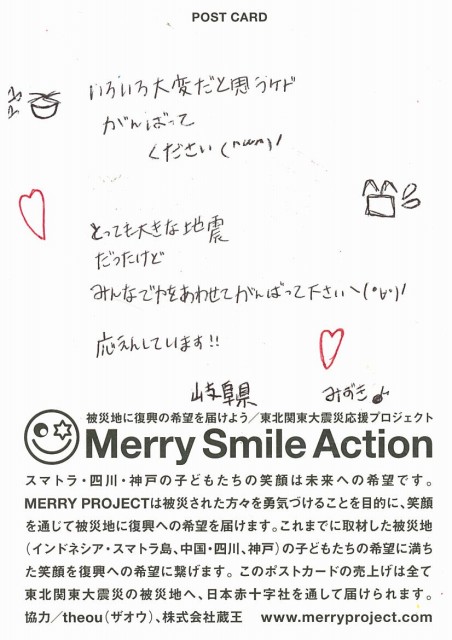 POST CARD
いろいろ大変だと思うケド
がんばって
ください(^ω^)/
とっても大きな地震
だったけど
みんなで力をあわせてがんばって下さい＼(°∀°)/
応えんしています!!
岐阜県 みずき♪
被災地に復興の希望を届けよう／東北関東大震災応援プロジェクト
Merry Smile Action
スマトラ・四川・神戸の子どもたちの笑顔は未来への希望です。
MERRY PROJECTは被災された方々を勇気づけることを目的に、笑顔
を通じて被災地に復興への希望を届けます。これまでに取材した被災地
（インドネシア・スマトラ島、中国・四川、神戸）の子どもたちの希望に満ち
た笑顔を復興への希望に繋げます。このポストカードの売上げは全て
東北関東大震災の被災地へ、日本赤十字社を通して届けられます。
協力／theou（ザオウ）、株式会社蔵王 www.merryproject.com